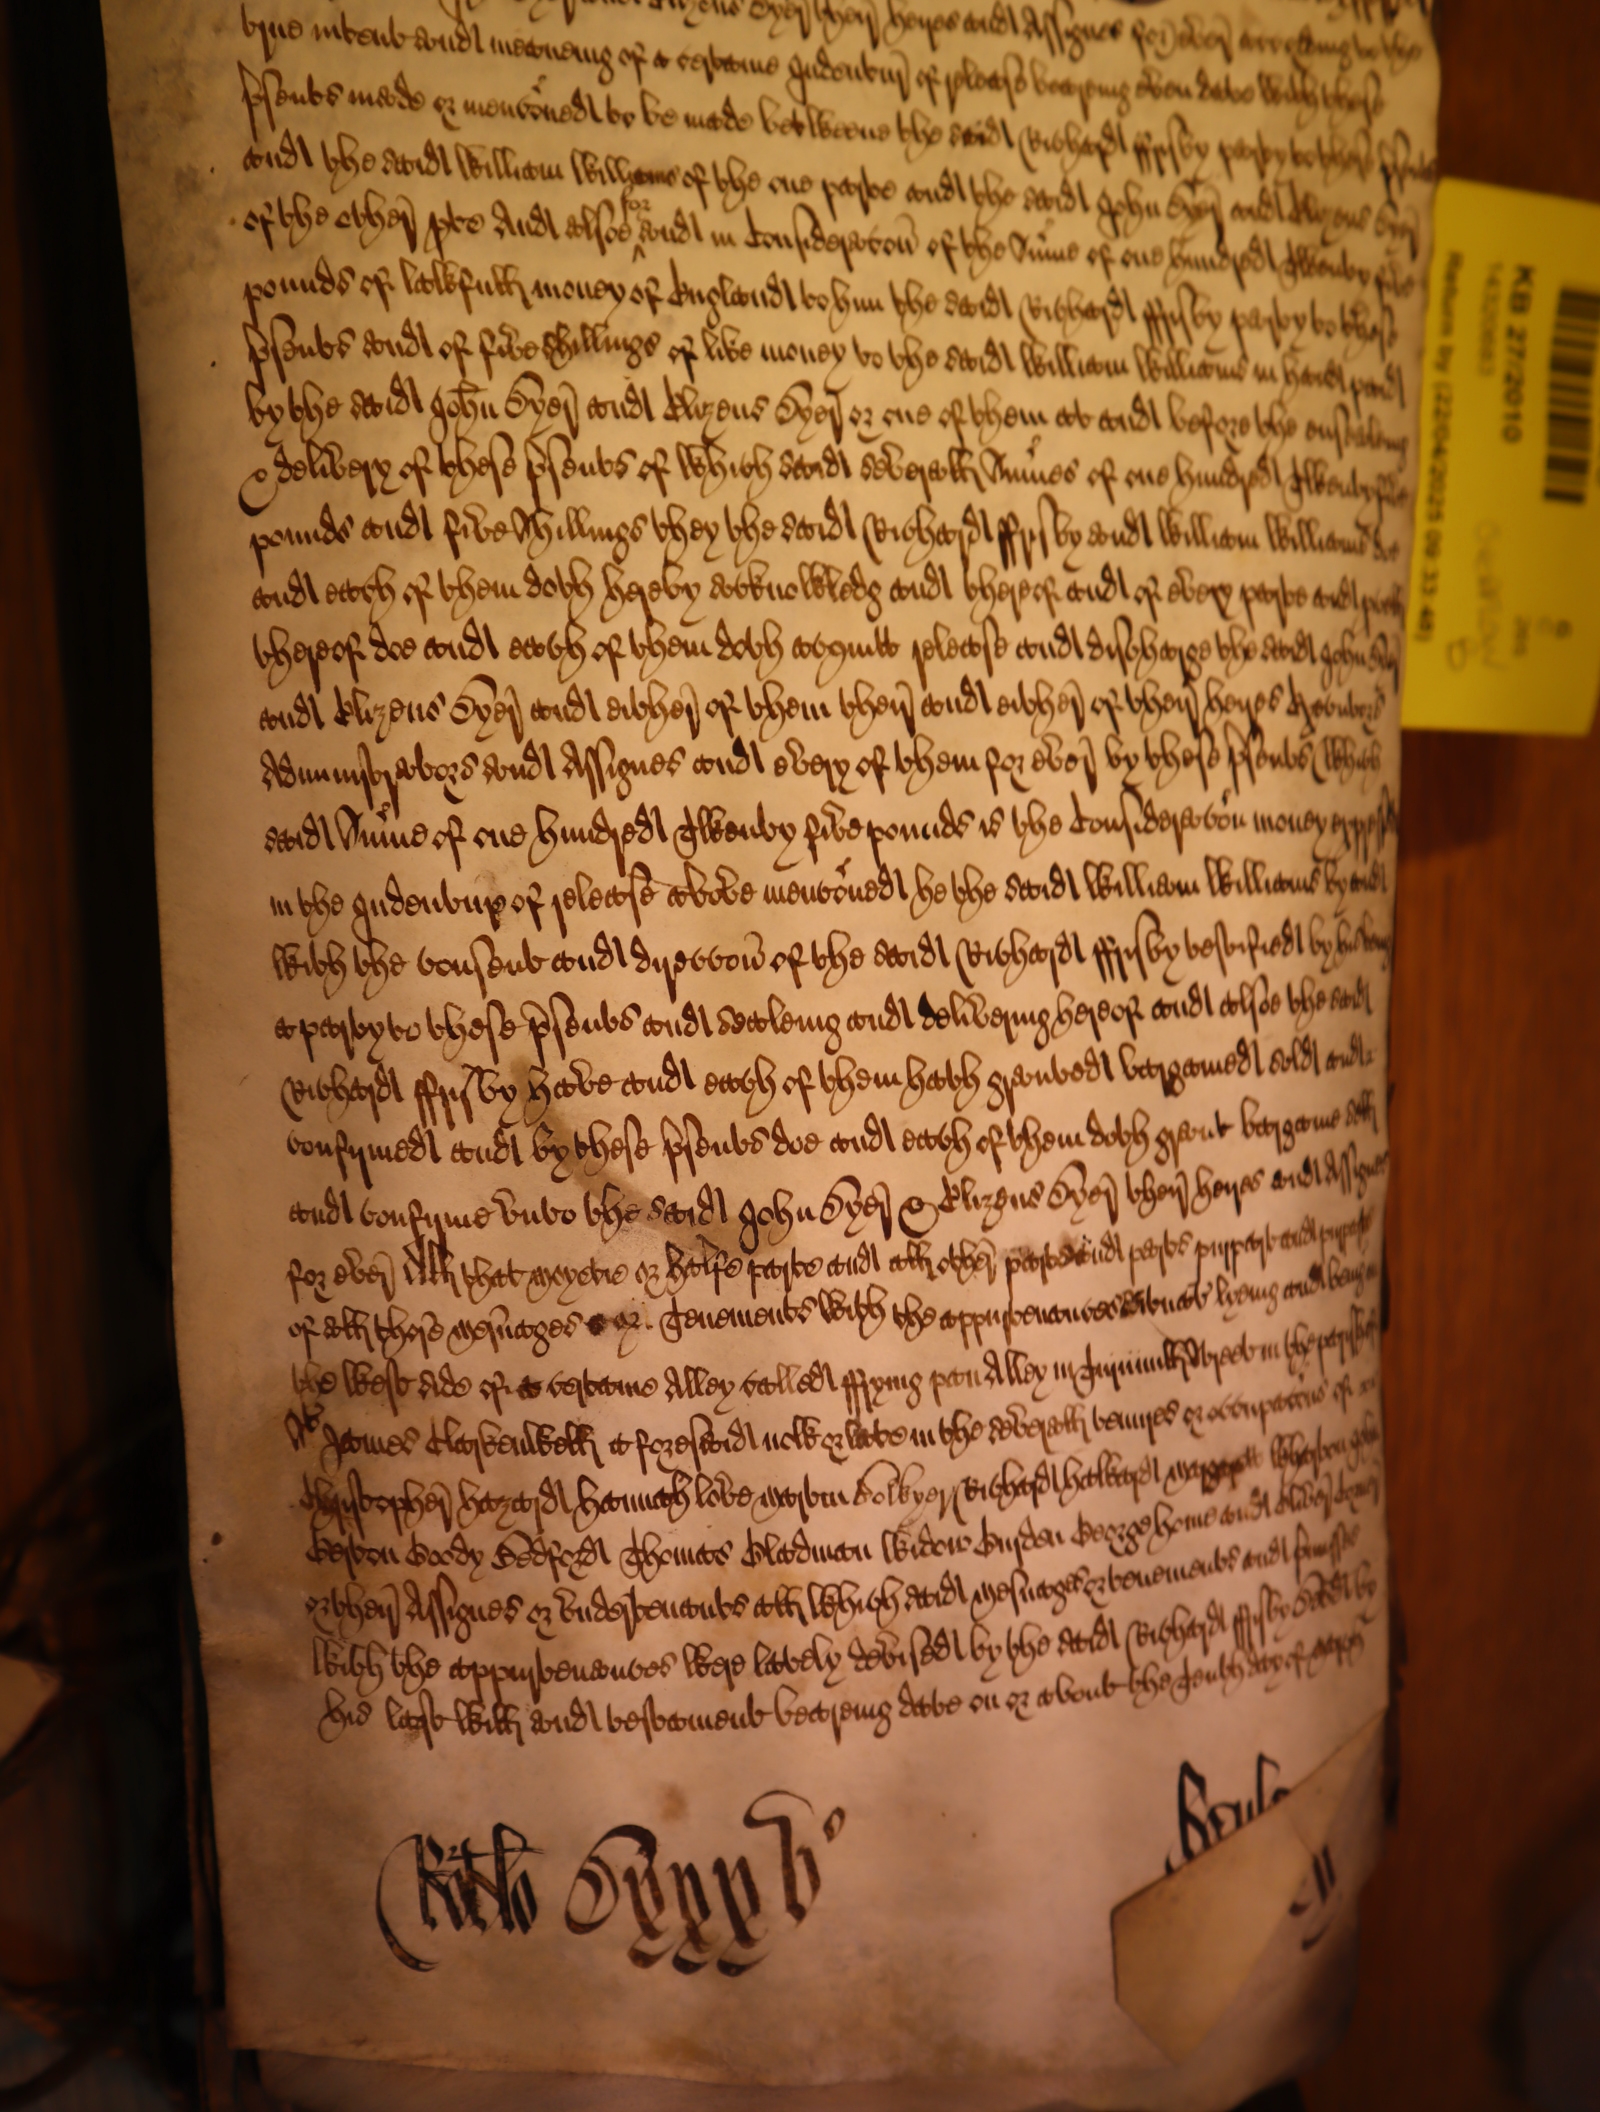 Elizeus Dyer their heires and Assignes for ever according to the
true intent and meaneing of a certaine Indenture of release beareing even date with these
p̃sents made or menc̃oned to be made betweene the said Richard ffrisby party to these p̃sents
and the said William Williams of the one parte and the said John Dyer and Elizeus Dyer
of the other pte And alsoe for and in Considerac̃on of the Sum̃e of one hundred Twenty five
pounds of lawfull money of England to him the said Richard ffrisby party to these
p̃sents and of five shillings of like money to the said William Williams in hand paid
by the said John Dyer and Elizeus Dyer or one of them at and before the ensealeing
& delivery of these p̃sents of which said severall Sum̃es of one hundred Twenty five
pounds and five Shillings they the said Richard ffrisby and William Williams doe
and each of them doth hereby acknowledg and thereof and of every parte and pcell
thereof doe and each of them doth acquitt release and discharge the said John Dyer
and Elizeus Dyer and either of them their and either of their heires Executors
Administrators and Assignes and every of them for ever by these p̃sents (which
said Sum̃e of one hundred Twenty five pounds is the Considerac̃on money expressed
in the Indenture of release above menc̃oned) he the said William Williams by and
with the consent and direcc̃on of the said Richard ffrisby testified by his being
a party to these p̃sents and sealeing and delivering hereof and alsoe the said
Richard ffrisby Have and each of them hath graunted bargained sold and
confirmed and by these p̃sents doe and each of them doth graunt bargaine sell
and confirme unto the said John Dyer & Elizeus Dyer their heires and Assignes
for ever All that moyetie or halfe parte and all other parte and parts purpart and purparts
of all those mesuages or Tenements with the appurtenances scituate lyeing and being on
the West side of a certaine Alley called ffrying pan Alley in Turnmill Streete in the parish of
St James Clarkenwell aforesaid now or late in the severall tenures or occupac̃ons of
Christopher Hazard Hannah Love Martin Colbyer Richard Halward Margarett Wharton John
Gerton Goody Bedford Thomas Gladman Widow Burden George Home and Oliver
or their Assignes or Undertenants all which said mesuages or tenements and p̃misses
with the appurtenances were lately devised by the said Richard ffrisby Deced by
his last Will and testament beareing date on or about the Tenth day of
Rotlo Dxxxvo
KB 27/2010
14320683
Return by (22/04/2025 09:33:48)